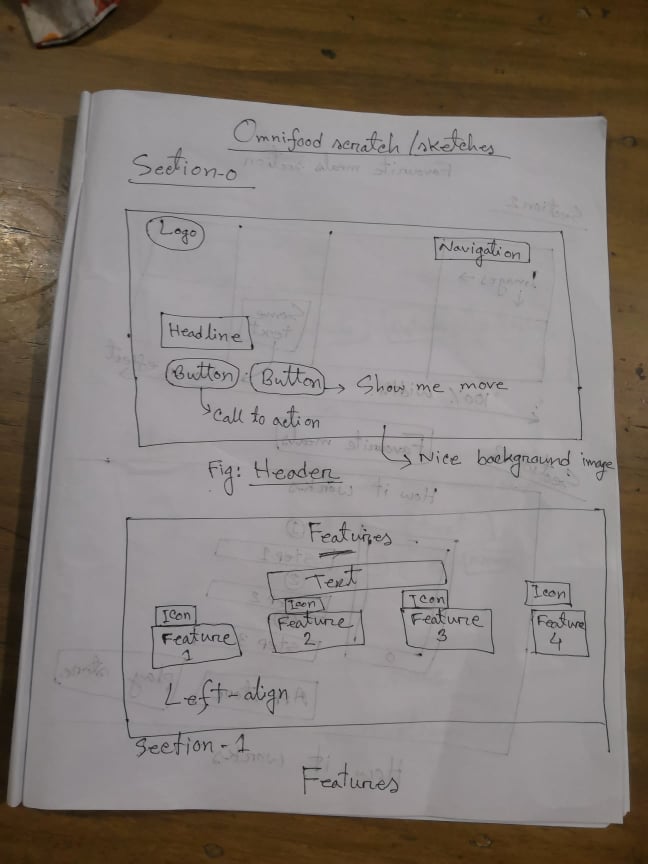 Omnifood scratch/sketches
Section-0
Logo
Navigation
Headline
Button Button → Show me move
Call to action
Nice background image
Fig: Header
Features
Text
Icon Icon Icon Icon
Feature 1 Feature 2 Feature 3 Feature 4
Left-align
Section-1
Features